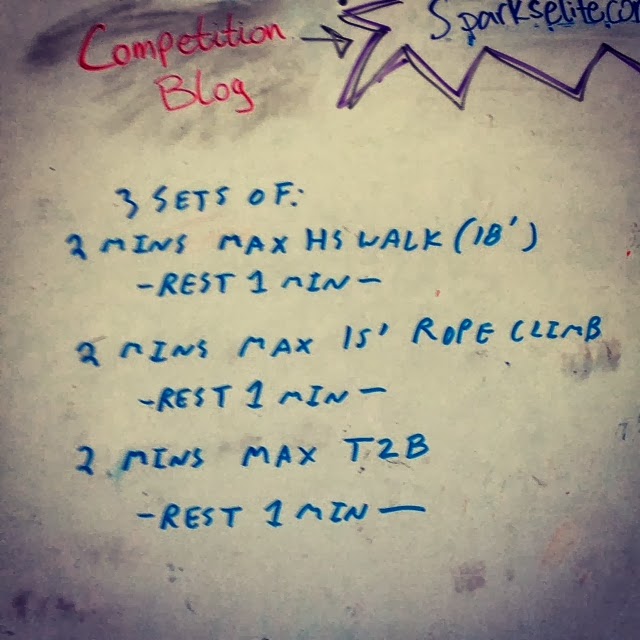 Competition
Blog
Sparkselite.co
3 SETS OF:
2 MINS MAX HS WALK (18')
-REST 1 MIN-
2 MINS MAX 15' ROPE CLIMB
-REST 1 MIN-
2 MINS MAX T2B
-REST 1 MIN-